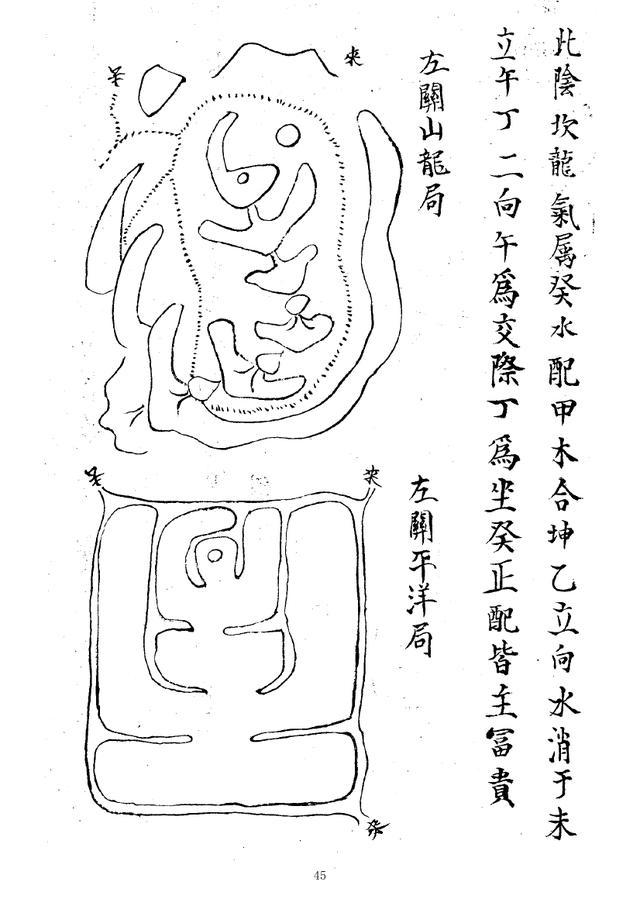 此陰坎龍氣屬癸水配甲木合坤乙立向水消于未
立午丁二向午爲交際丁爲坐癸正配皆主冨貴
左關山龍局
来
左關平洋局
来
45